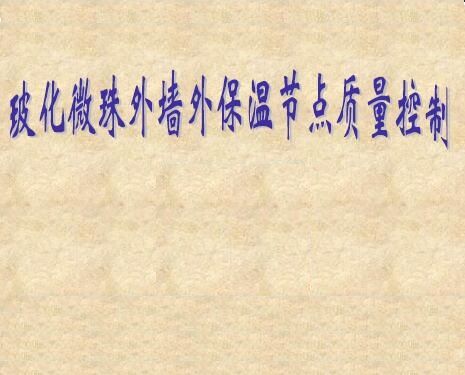 玻化微珠外墙外保温节点质量控制